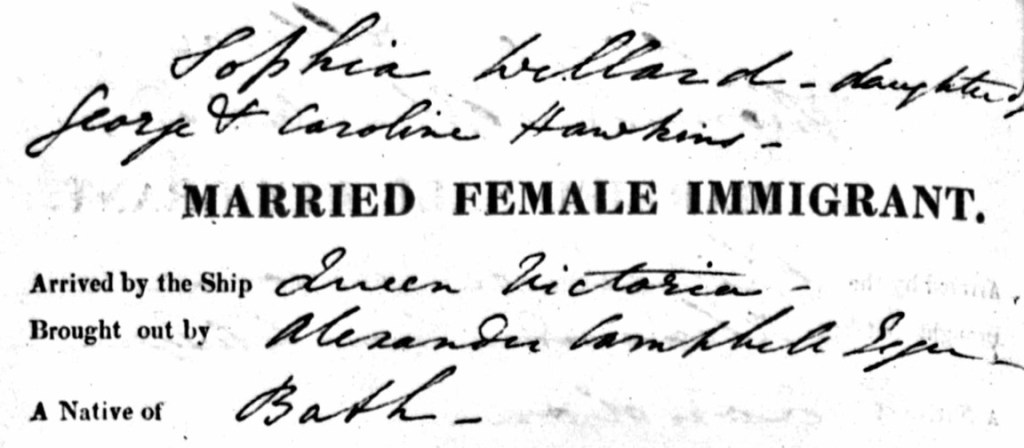 Sophia Willard - daughter of
George & Caroline Hawkins -
MARRIED FEMALE IMMIGRANT.
Arrived by the Ship Queen Victoria -
Brought out by Alexander Campbell Esqr
A Native of Bath -